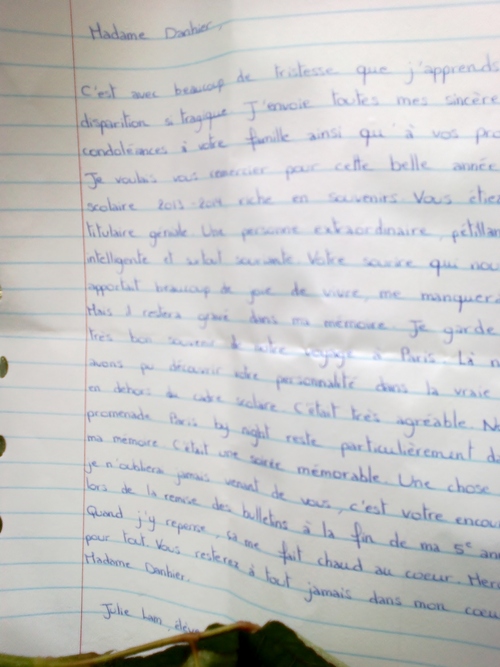 Madame Danhier,
C'est avec beaucoup de tristesse que j'apprends
disparition si tragique J'envoie toutes mes sincère
condoléances à votre famille ainsi qu'à vos pro
Je voulais vous remercier pour cette belle année
scolaire 2013-2014 riche en souvenirs. Vous étie
titulaire géniale. Une personne extraordinaire, pétillan
intelligente et surtout souriante. Votre sourire qui nou
apportait beaucoup de joie de vivre, me manquera
Mais il restera gravé dans ma mémoire. Je garde
très bon souvenir de notre voyage à Paris. Là n
avons pu découvrir votre personnalité dans la vraie
en dehors du cadre scolaire. C'était très agréable. No
promenade Paris by night reste particulièrement da
ma memoire C'était une soirée mémorable. Une chose
je n'oublierai jamais venant de vous, c'est votre encou
lors de la remise des bulletins à la fin de ma 5e ann
Quand j'y repense, ça me fait chaud au coeur. Merc
pour tout. Vous resterez à tout jamais dans mon coeu
Madame Danhier.
Julie Lam, élève